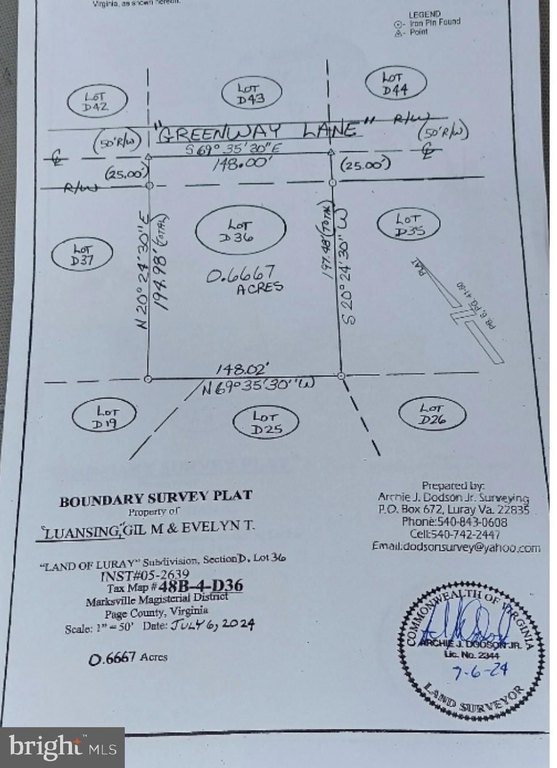 Virginia, as shown hereon.
LEGEND
⊙- Iron Pin Found
△- Point
LOT D42
LOT D43
LOT D44
"GREENWAY LANE"
R/W
(50' R/W)
(50' R/W)
S 69° 35' 30" E
148.00'
(25.00')
(25.00')
R/W
LOT D37
LOT D36
LOT D35
0.6667
ACRES
N 20° 24' 30" E
194.98 (TOTAL)
197.48 (TOTAL)
S 20° 24' 30" W
PLAT
PB. B, PG. 41-50
148.02'
N 69° 35' 30" W
LOT D19
LOT D25
LOT D26
BOUNDARY SURVEY PLAT
Property of
LUANSING, GIL M & EVELYN T.
"LAND OF LURAY" Subdivision, Section D, Lot 36
INST#05-2639
Tax Map # 48B-4-D36
Marksville Magisterial District
Page County, Virginia
Scale: 1" = 50' Date: JULY 6, 2024
0.6667 Acres
Prepared by:
Archie J. Dodson Jr. Surveying
P.O. Box 672, Luray Va. 22835
Phone:540-843-0608
Cell:540-742-2447
Email:dodsonsurvey@yahoo.com
COMMONWEALTH OF VIRGINIA
ARCHIE J. DODSON JR.
Lic. No. 2344
7-6-24
LAND SURVEYOR
bright MLS